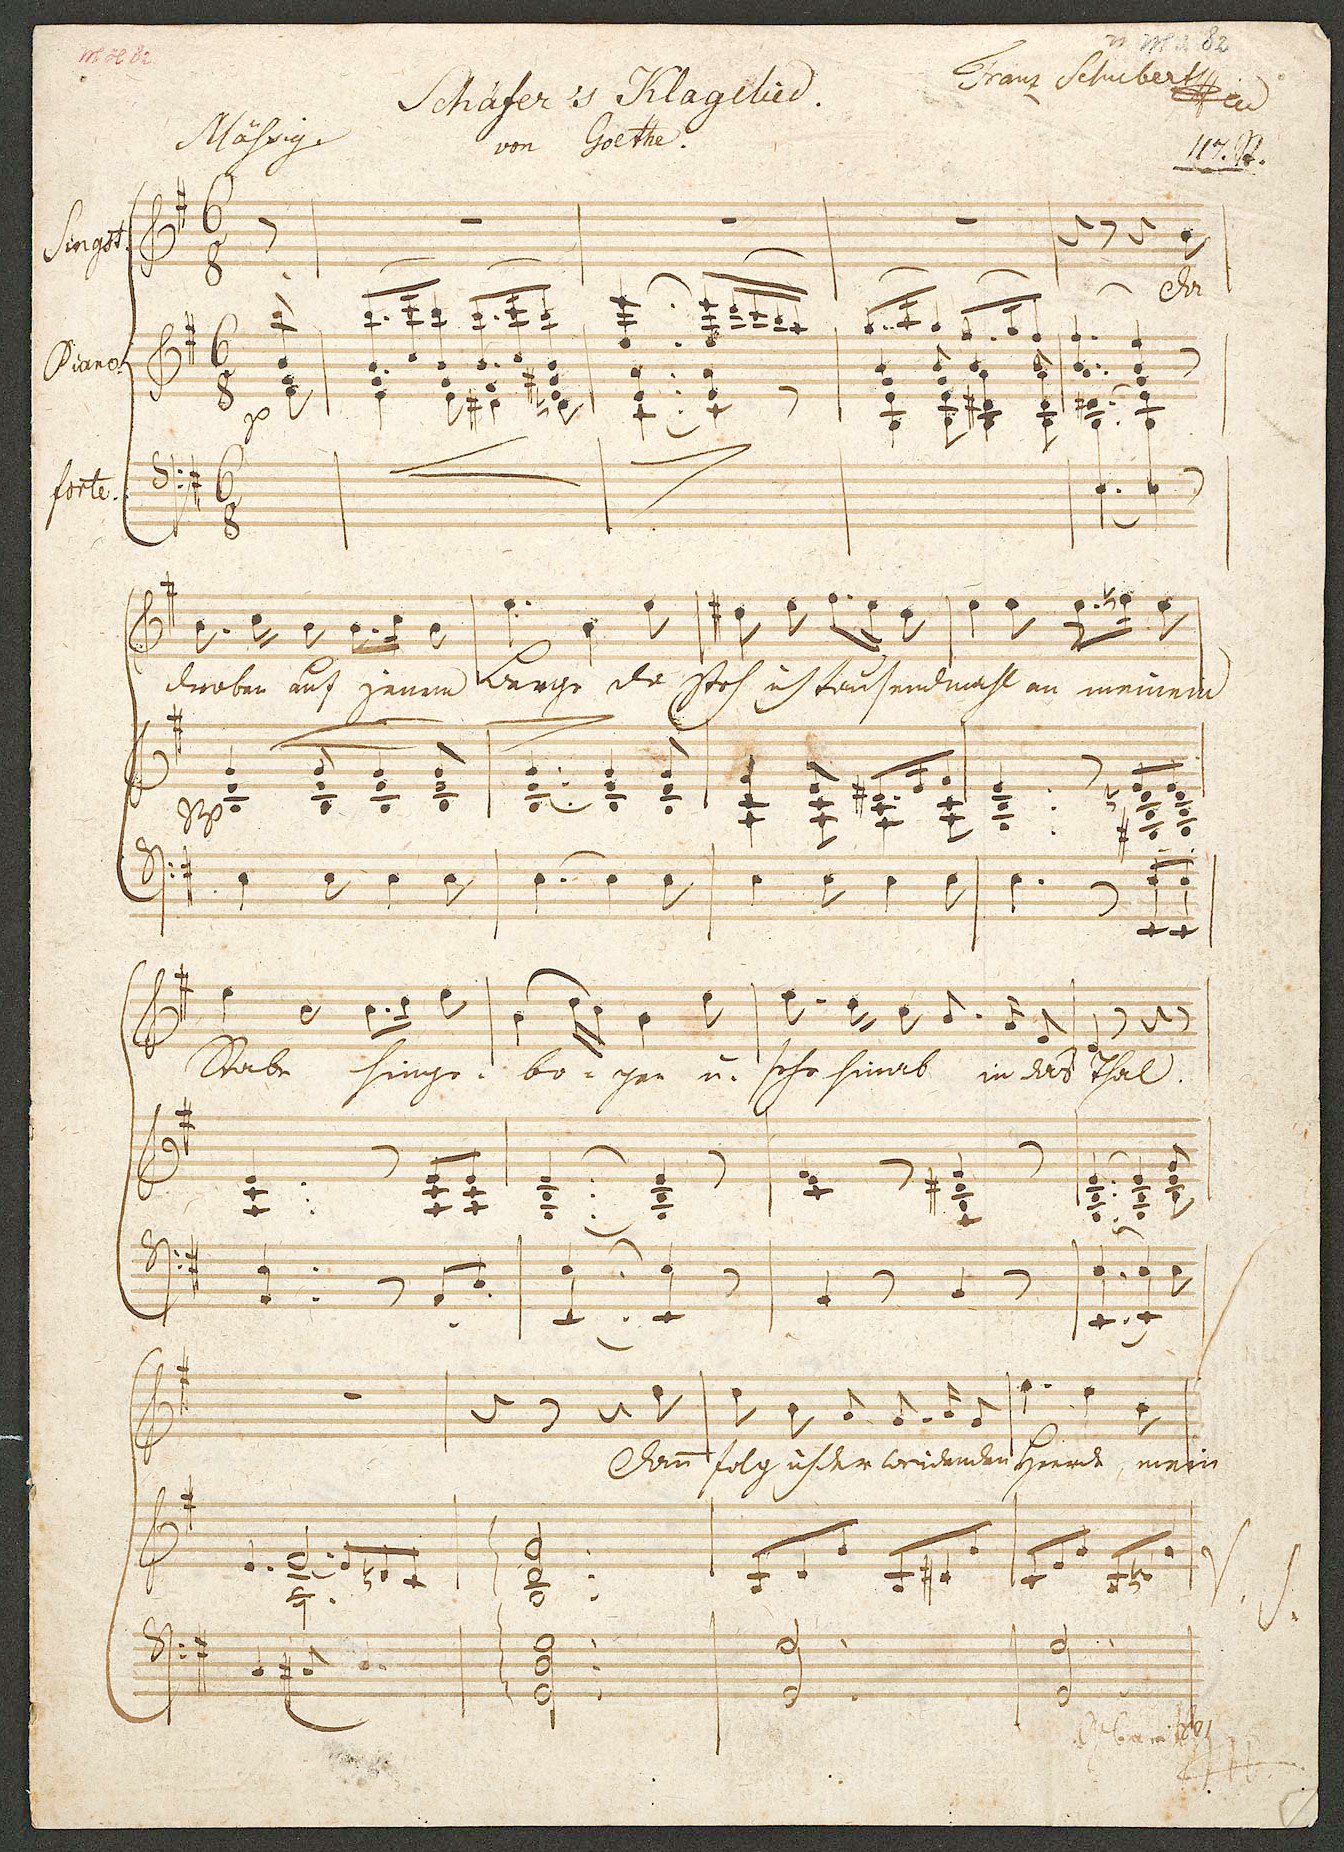 MH 82
MH 82
Schäfer's Klagelied.
Franz Schubert
Mässig.
von Goethe.
Singst.
6 8
Da
Piano
6 8
p
forte.
6 8
droben auf jenem Berge da steh ich tausendmahl an meinem
pp
Stabe hinge- bo- gen u. sehe hinab in das Thal.
Dann folg ich der weidenden Heerde, mein
V. S.